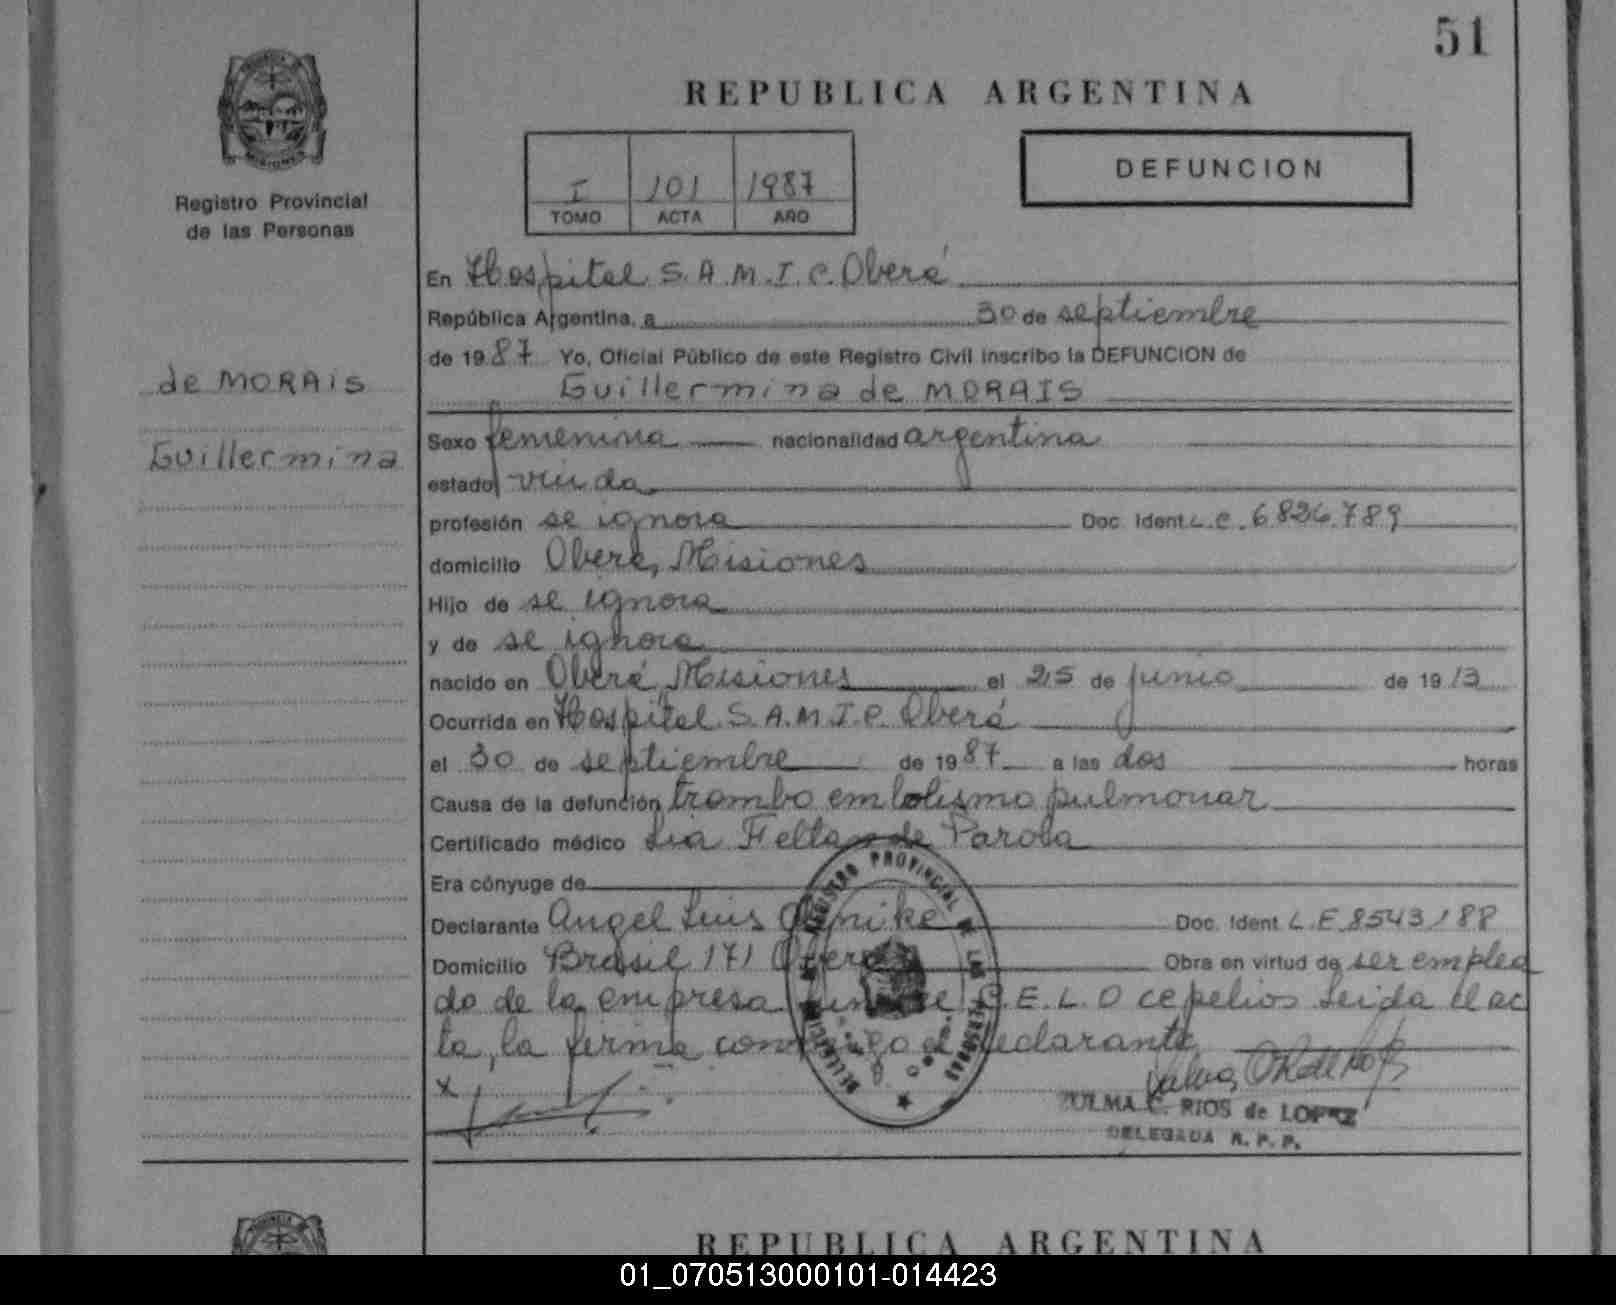 51
REPUBLICA ARGENTINA
MISIONES
Registro Provincial
de las Personas
I 101 1987
TOMO ACTA AÑO
DEFUNCION
En Hospital S.A.M.I.C. Oberá
República Argentina, a 30 de septiembre
de 1987 Yo, Oficial Público de este Registro Civil inscribo la DEFUNCION de
de MORAIS
Guillermina de MORAIS
Guillermina
Sexo femenina nacionalidad argentina
estado viuda
profesión se ignora Doc. Ident. L.C. 6.826.789
domicilio Oberá, Misiones
Hijo de se ignora
y de se ignora
nacido en Oberá, Misiones el 25 de junio de 1913
Ocurrida en Hospital S.A.M.I.C. Oberá
el 30 de septiembre de 1987 a las dos horas
Causa de la defunción trombo embolismo pulmonar
Certificado médico Lia de Parola
Era cónyuge de
Declarante Angel Luis Doc. Ident. L.E. 8543188
Domicilio Brasil 171 Oberá Obra en virtud de ser emplea
do de la empresa C.E.L.O cepelios Leida el ac
ta, la firma conmigo el declarante
REGISTRO PROVINCIAL DE LAS PERSONAS
X
ZULMA C. RIOS de LOPEZ
DELEGADA R. P. P.
REPUBLICA ARGENTINA
01_070513000101-014423